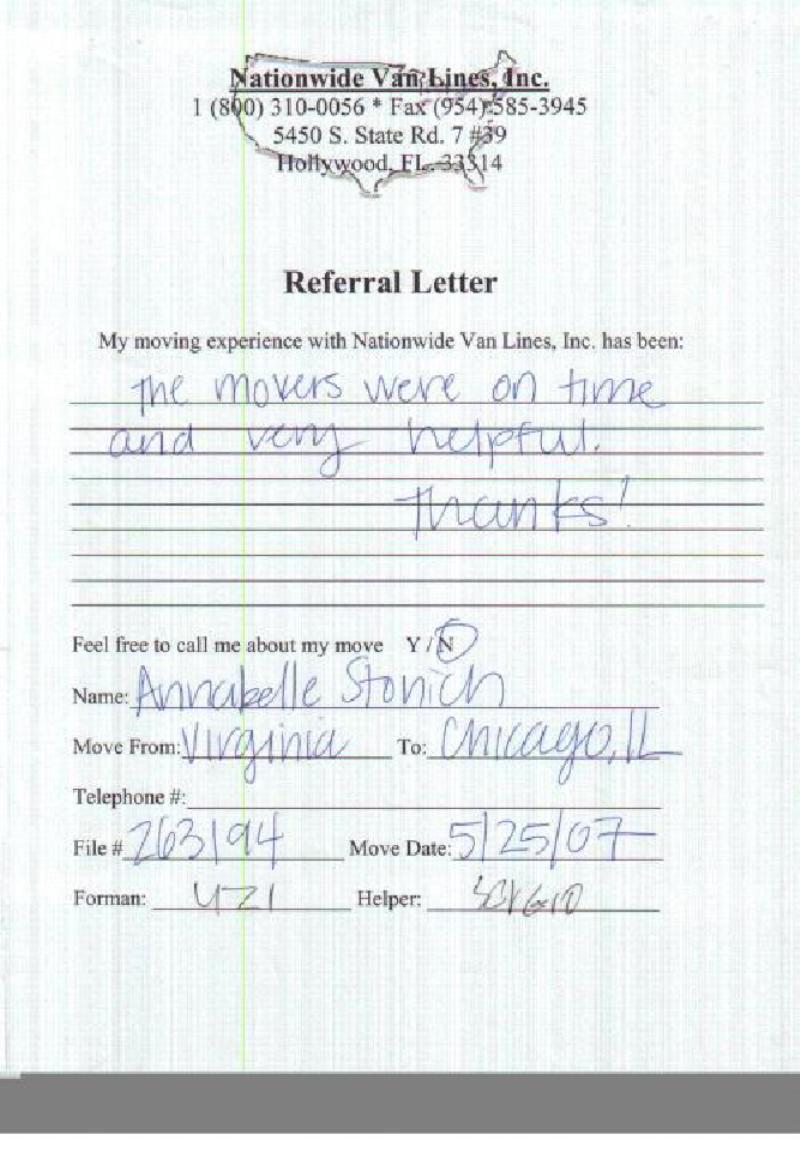 Nationwide Van Lines, Inc.
1 (800) 310-0056 * Fax (954) 585-3945
5450 S. State Rd. 7 #39
Hollywood, FL. 33314
Referral Letter
My moving experience with Nationwide Van Lines, Inc. has been:
The movers were on time
and very helpful.
Thanks!
Feel free to call me about my move Y / N
Name: Annabelle Stonich
Move From: Virginia To: Chicago, IL
Telephone #:
File # 263194 Move Date: 5/25/07
Forman: UZI Helper: Sergio